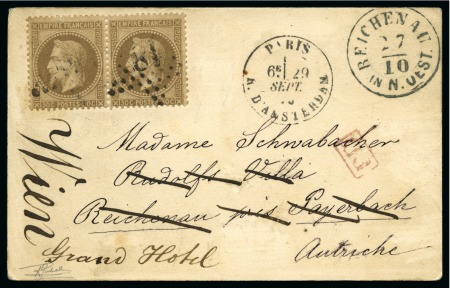 EMPIRE FRANÇAIS EMPIRE FRANÇAIS
PARIS
6E 29
SEPT.
R. D'AMSTERDAM
REICHENAU
27
10
IN N. OEST.
Madame Schwabacher
Rudolfs Villa
Reichenau pis Payerbach
Autriche
Wien
Grand Hotel